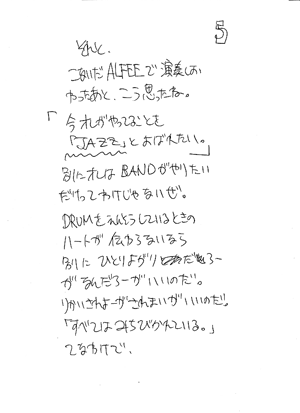 5
それと、
こないだALFEEで演奏しお
わったあと、こう思ったね。
「今オレがやってることを
「JAZZ」とよばれたい。」
別にオレはBANDがやりたい
だけってわけじゃないぜ。
DRUMをえんそうしているときの
ハートが伝わらないなら
別にひとりよがりだろー
がなんだろーがいいのだ。
りかいされよーがされまいがいいのだ。
「すべてはみちびかれている。」
てなわけで、